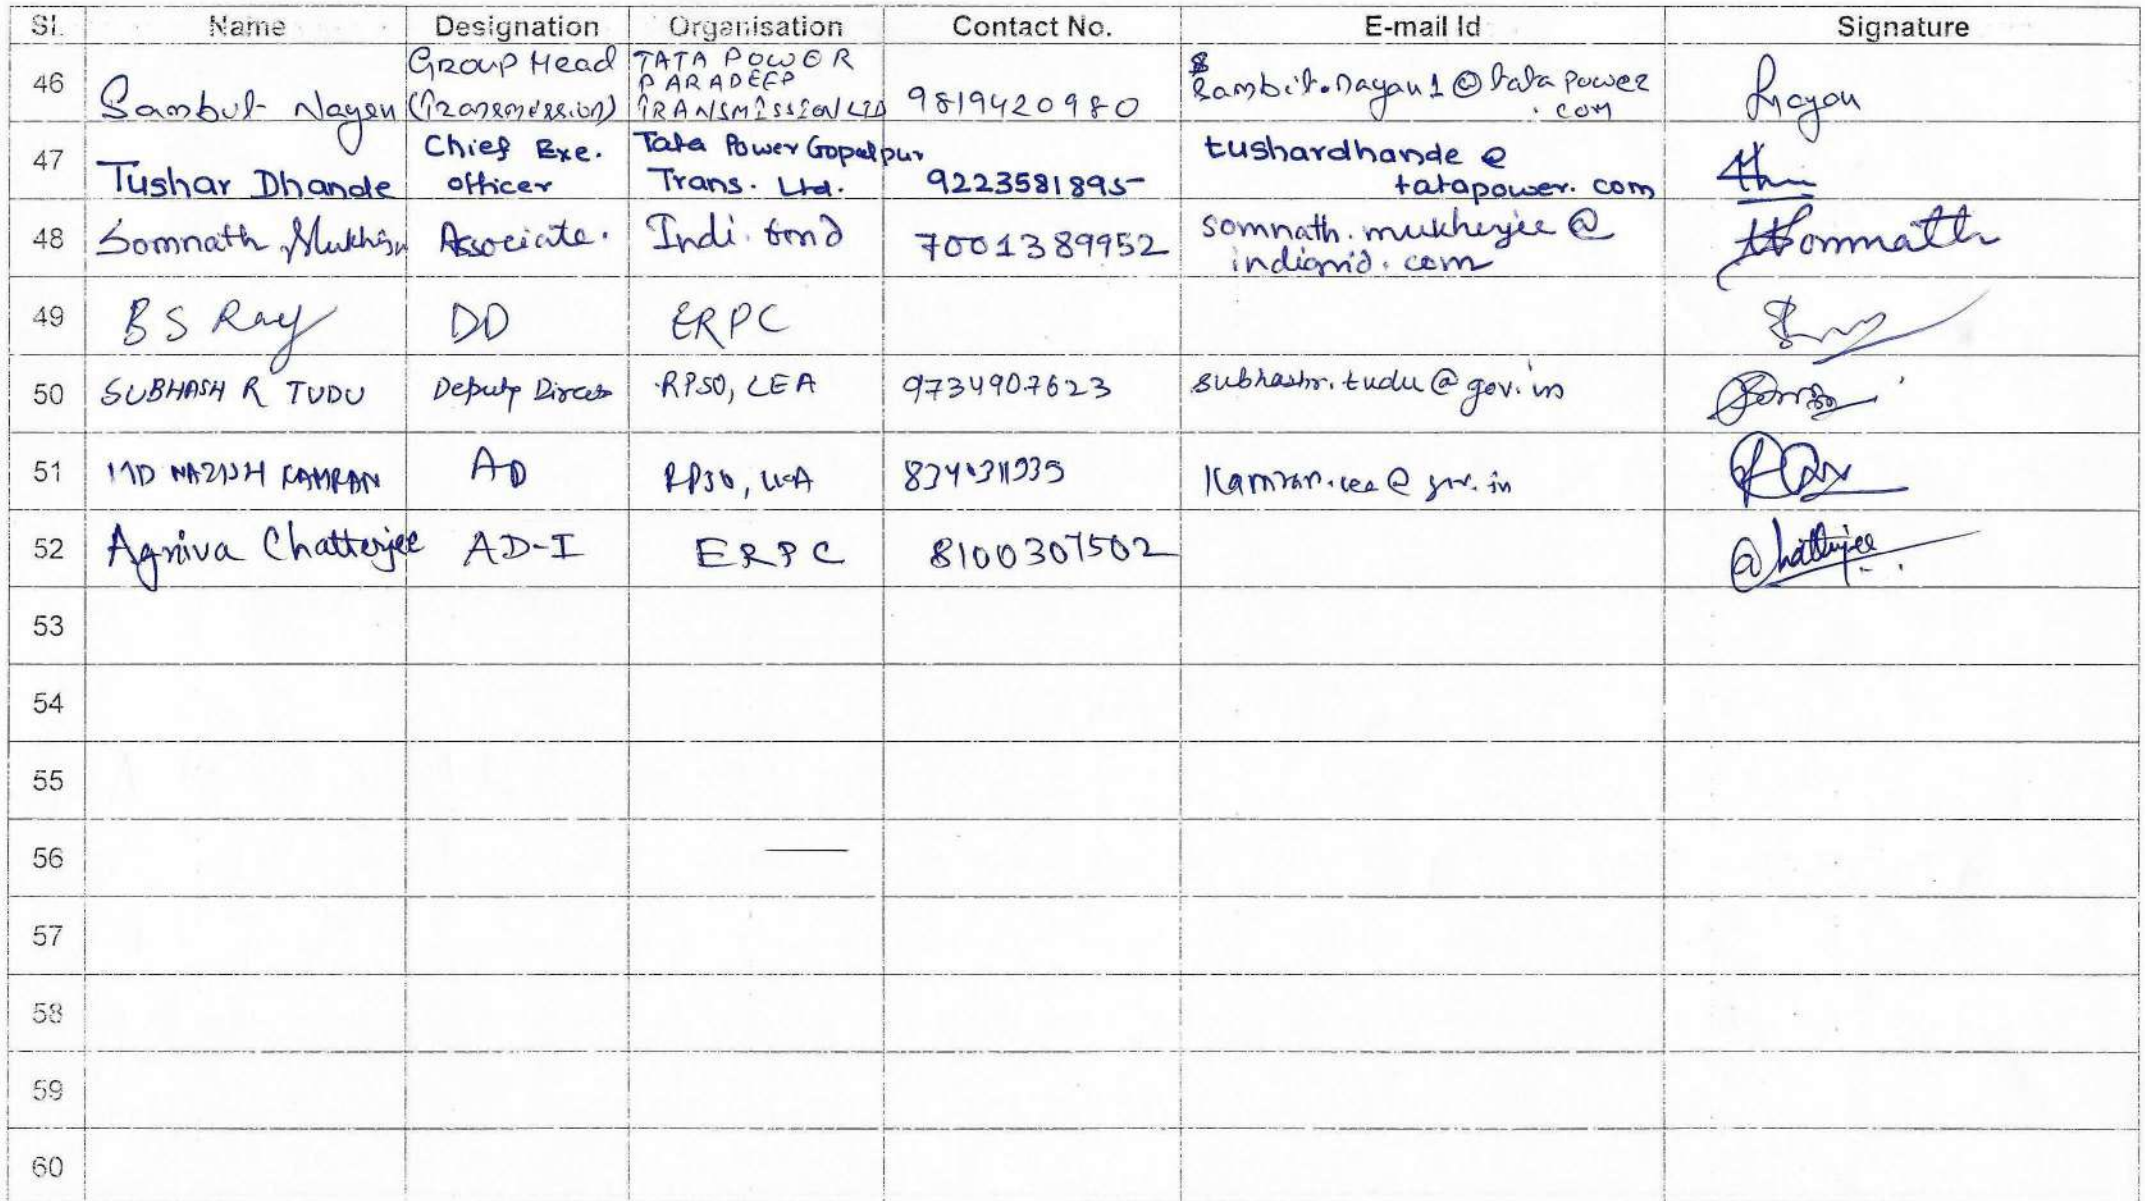 Sl. Name Designation Organisation Contact No. E-mail Id Signature
46 Sambit Nayan Group Head (Transmission) TATA POWER PARADEEP TRANSMISSION LTD 9819420980 Sambit.nayan1@tatapower.com Nayan
47 Tushar Dhande Chief Exe. officer Tata Power Gopalpur Trans. Ltd. 9223581895 tushardhande@tatapower.com
48 Somnath Mukherjee Associate. Indi grid 7001389952 somnath.mukherjee@indigrid.com Somnath
49 B S Ray DD ERPC
50 SUBHASH R TUDU Deputy Director RPSO, CEA 9734907623 subhashr.tudu@gov.in
51 MD NAZISH KAMRAN AD RPSO, CEA kamran.cea@gov.in
52 Agniva Chatterjee AD-I ERPC 8100307502 Chatterjee
53
54
55
56
57
58
59
60